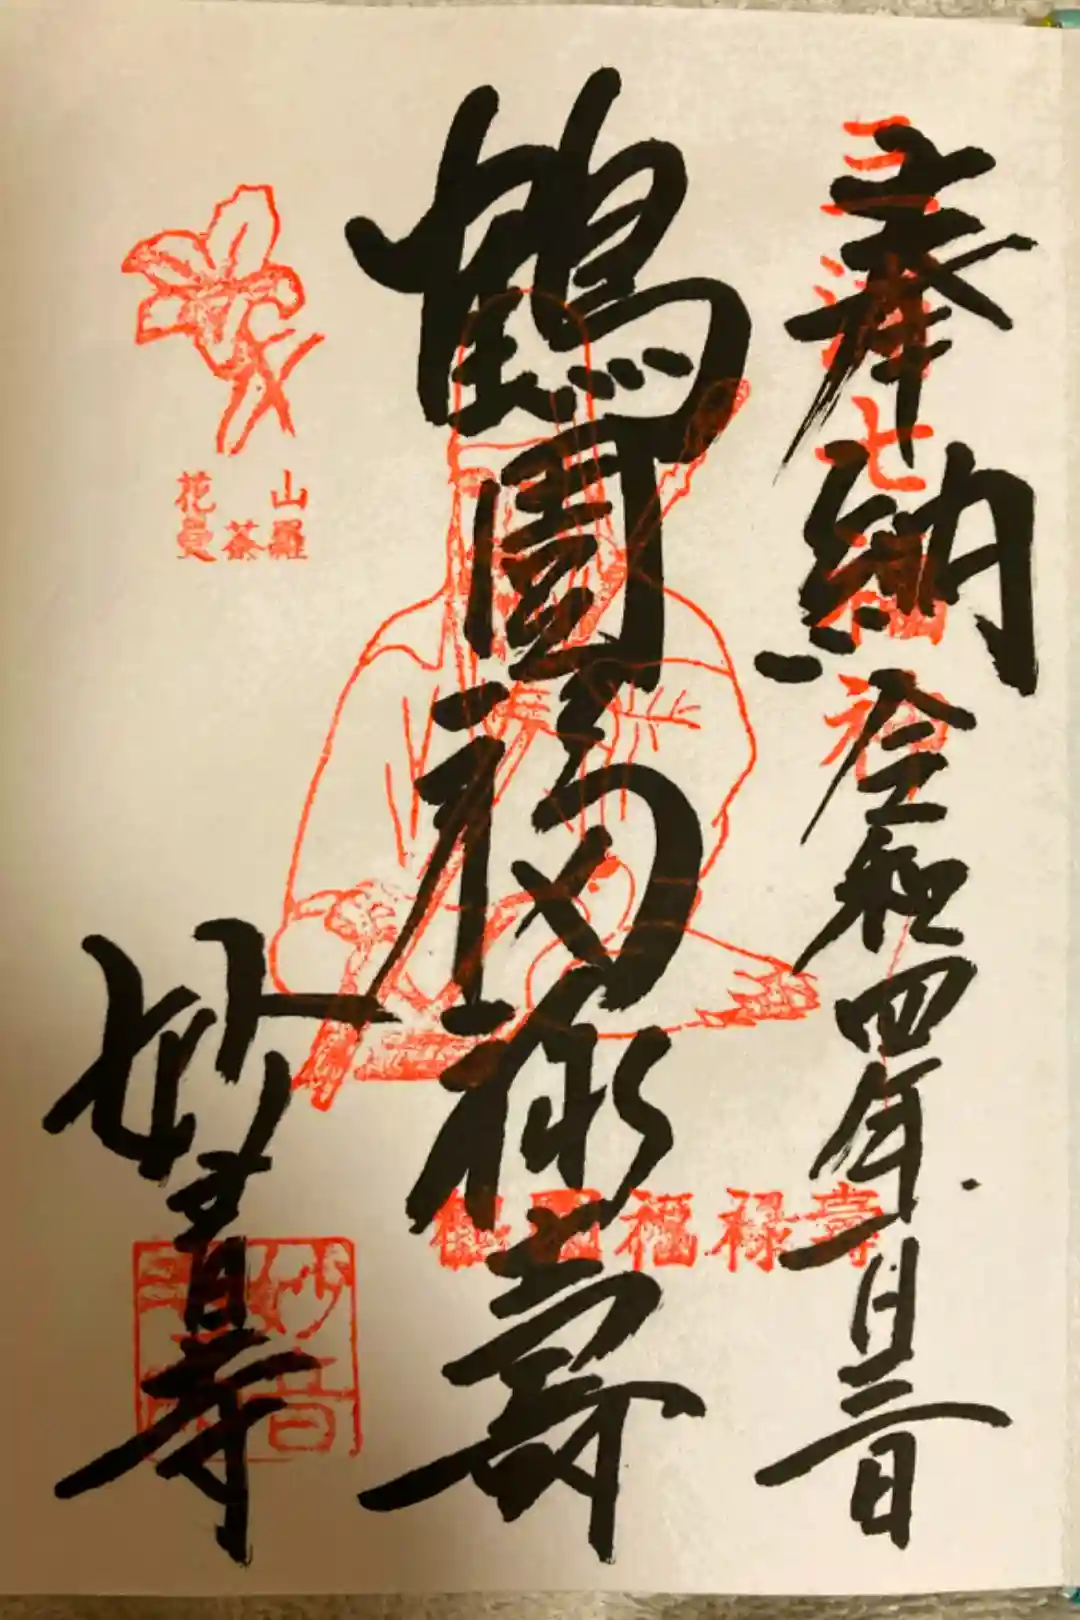 奉納 令和四年一月三日
三浦七福神
鶴園福禄壽
鶴園福禄壽
妙音寺
妙音寺
山
羅
茶
花
曼